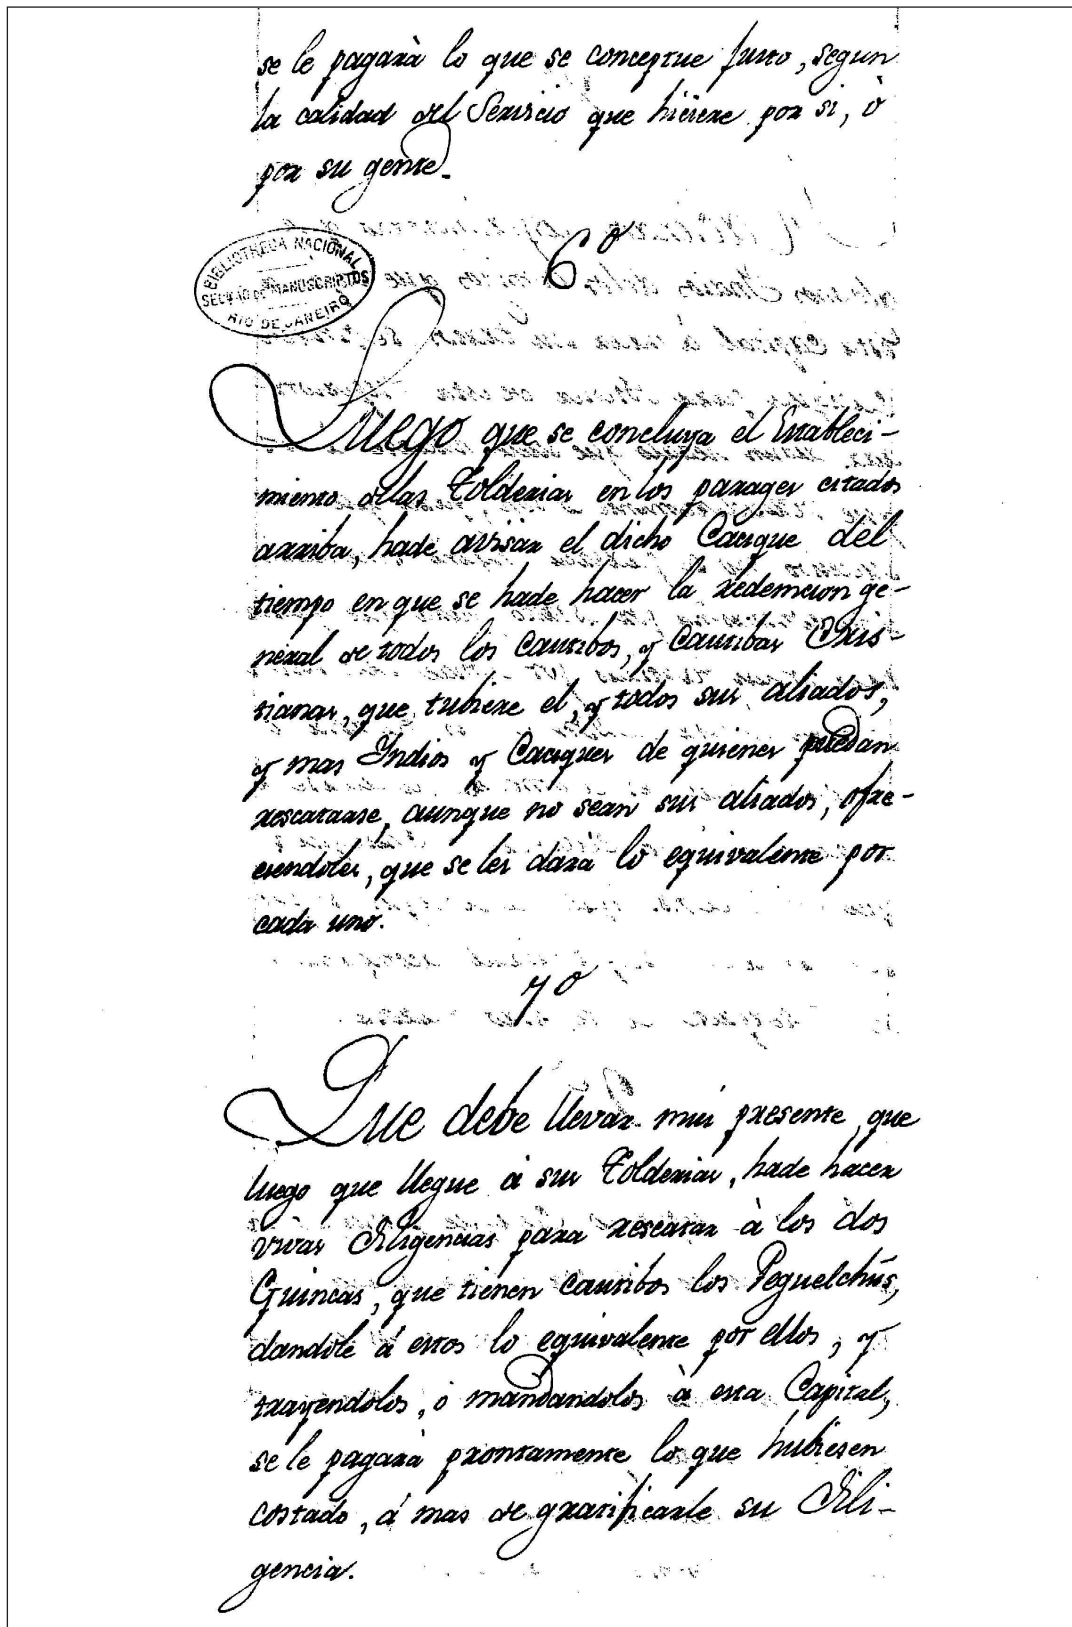 se le pagarà lo que se conceptue justo, segun
la calidad del Servicio que hiciere por si, ò
por su gente.
6º
BIBLIOTHECA NACIONAL
SECÇÃO DE MANUSCRIPTOS
RIO DE JANEIRO
Luego que se concluya el Estableci-
miento delas Tolderias en los parages citados
arriba, hade avisar el dicho Cacique del
tiempo en que se hade hacer la redempcion ge-
neral de todos los Cautibos, y Cautibas Cris-
tianas, que tubiere el, y todos sus aliados,
y mas Indios y Caciques de quienes puedan
rescatarse, aunque no sean sus aliados, ofre-
ciendoles, que se les darà lo equivalente por
cada uno.
7º
Que debe llevar mui presente, que
luego que llegue à sus Tolderias, hade hacer
vivas Diligencias para rescatar à los dos
Guincas, que tienen cautibos los Peguelchûs,
dandole à estos lo equivalente por ellos, y
trayendolos, ò mandandolos à esta Capital,
se le pagarà prontamente lo que hubiesen
costado, à mas de gratificarle su Dili-
gencia.